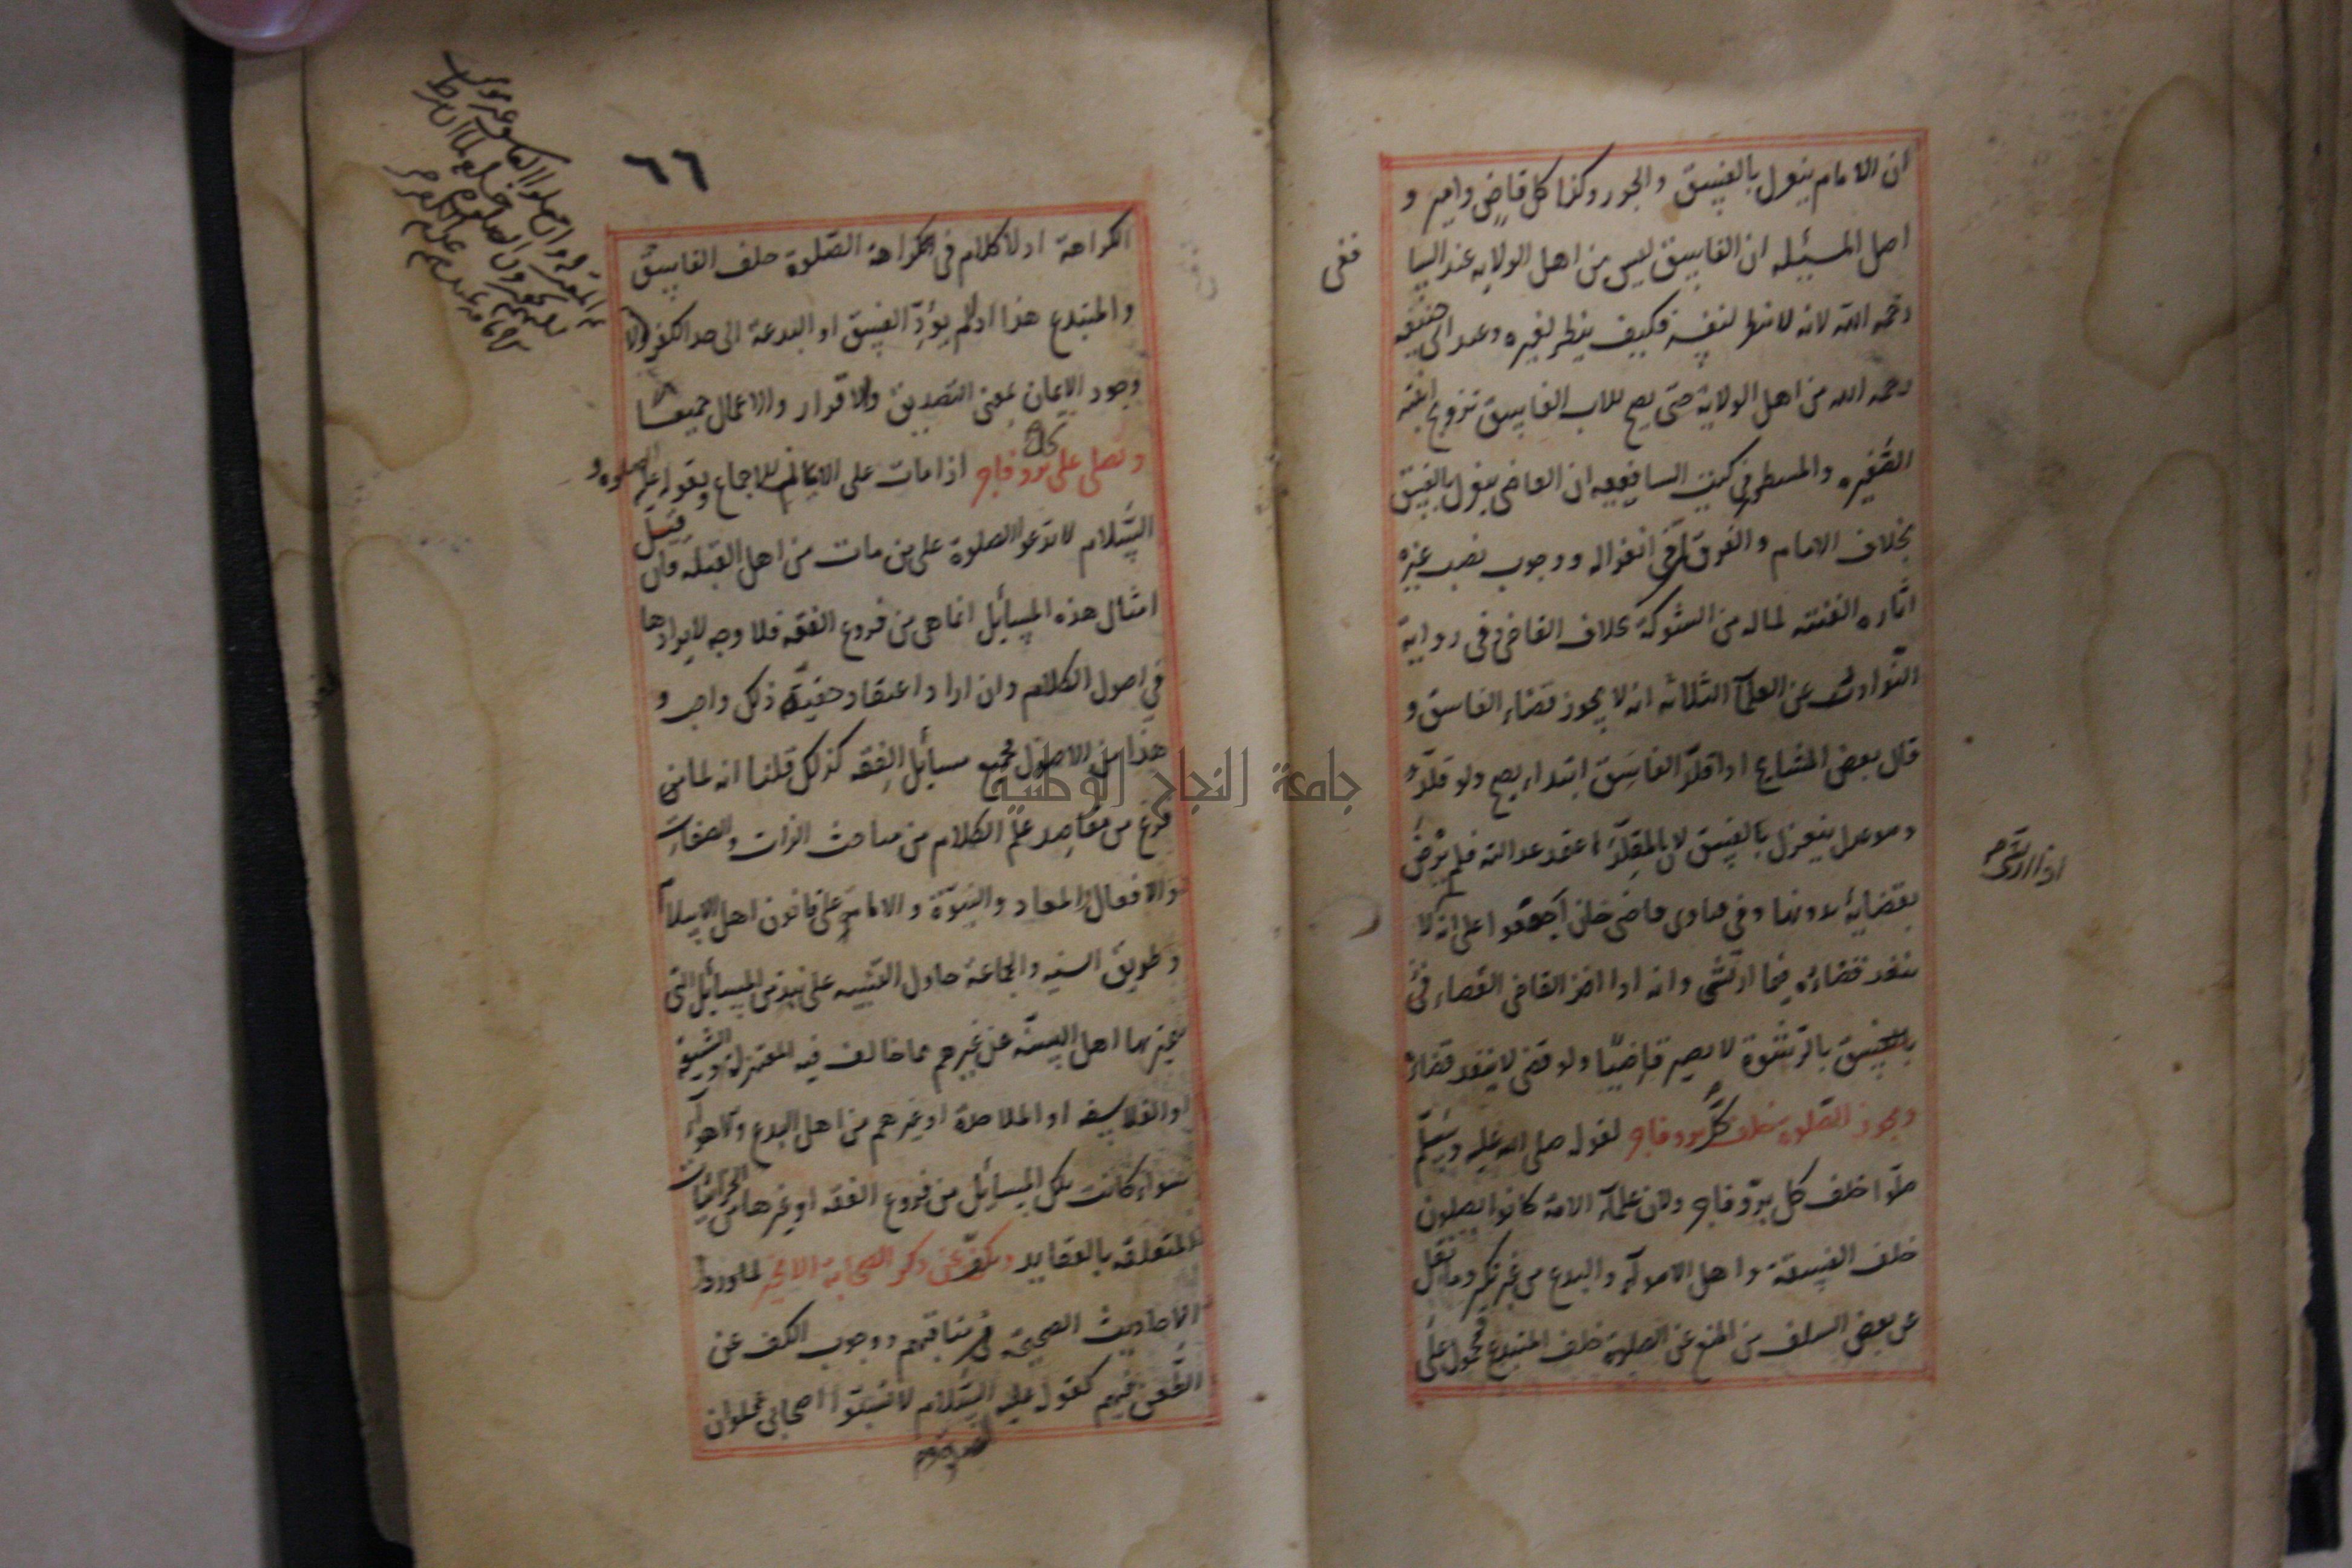 ان الامام ينعزل بالفسق والجور وكذا كل قاض وامير و
اصل المسئله ان الفاسق ليس من اهل الولايه عند الشا
فعي
رحمه الله لانه لا ينظر لنفسه فكيف ينظر لغيره وعند ابي حنيفه
رحمه الله من اهل الولاية حتى يصح للاب الفاسق تزويج ابنته
الصغيره والمسطور في كتب الشافعيه ان القاضي ينعزل بالفسق
بخلاف الامام والفرق ان في انعزاله ووجوب نصب غيره
اثاره الفتنه لما له من الشوكة بخلاف القاضي وفي رواية
النوادر عن العلمآ الثلاثه انه لا يجوز قضاء الفاسق و
قال بعض المشايخ اذا قلد الفاسق ابتداء يصح ولو قلد و
هو عدل ينعزل بالفسق لان المقلد اعتمد عدالته فلم يرض
بقضايه بدونها وفي فتاوى قاضي خان اجمعوا على انه لا
ينفذ قضاؤه فيما ارتشى وانه اذا اخذ القاضي القضاء
بالرشوة لا يصير قاضيا ولو قضى لا ينفذ قضاؤه
ويجوز الصلوة خلف كل بر وفاجر لقوله صلى الله عليه وسلم
صلوا خلف كل بر وفاجر ولان علمآء الامة كانوا يصلون
خلف الفسقة واهل الاهوآء والبدع من غير نكير وما نقل
عن بعض السلف من المنع عن الصلوة خلف المبتدع فمحمول على
٦٦
الكراهة اذ لا كلام في كراهة الصلوة خلف الفاسق
والمبتدع هذا اذا لم يؤد الفسق او البدعة الى حد الكفر
وجود الايمان بمعنى التصديق والاقرار والاعمال جميعا
ويصلى على كل بر وفاجر اذا مات على الايمان للاجماع ولقوله عليه الصلوة و
السلام لا تدعوا الصلوة على من مات من اهل القبله فان قيل
امثال هذه المسائل انما هي من فروع الفقه فلا وجه لايرادها
في اصول الكلام وان اراد اعتقاد حقية ذلك واجب و
هذا من الاصول فجميع مسائل الفقه كذلك قلنا انه لما
فرغ من مقاصد علم الكلام من مباحث الذات والصفات
والافعال والمعاد والنبوة والامامة على قانون اهل الاسلام
وطريق السنه والجماعة حاول التنبيه على نبذ من المسائل التي
يتميز بها اهل السنة عن غيرهم مما خالف فيه المعتزلة والشيعة
او الفلاسفه او الملاحدة او غيرهم من اهل البدع والاهوآء
سواء كانت تلك المسائل من فروع الفقه او غيرها من الجزئيات
المتعلقه بالعقايد ويكف عن ذكر الصحابة الا بخير لما ورد
الاحاديث الصحيحة في مناقبهم ووجوب الكف عن
الطعن فيهم كقوله عليه السلام لا تسبوا اصحابي فلو ان
جامعة النجاح الوطنية